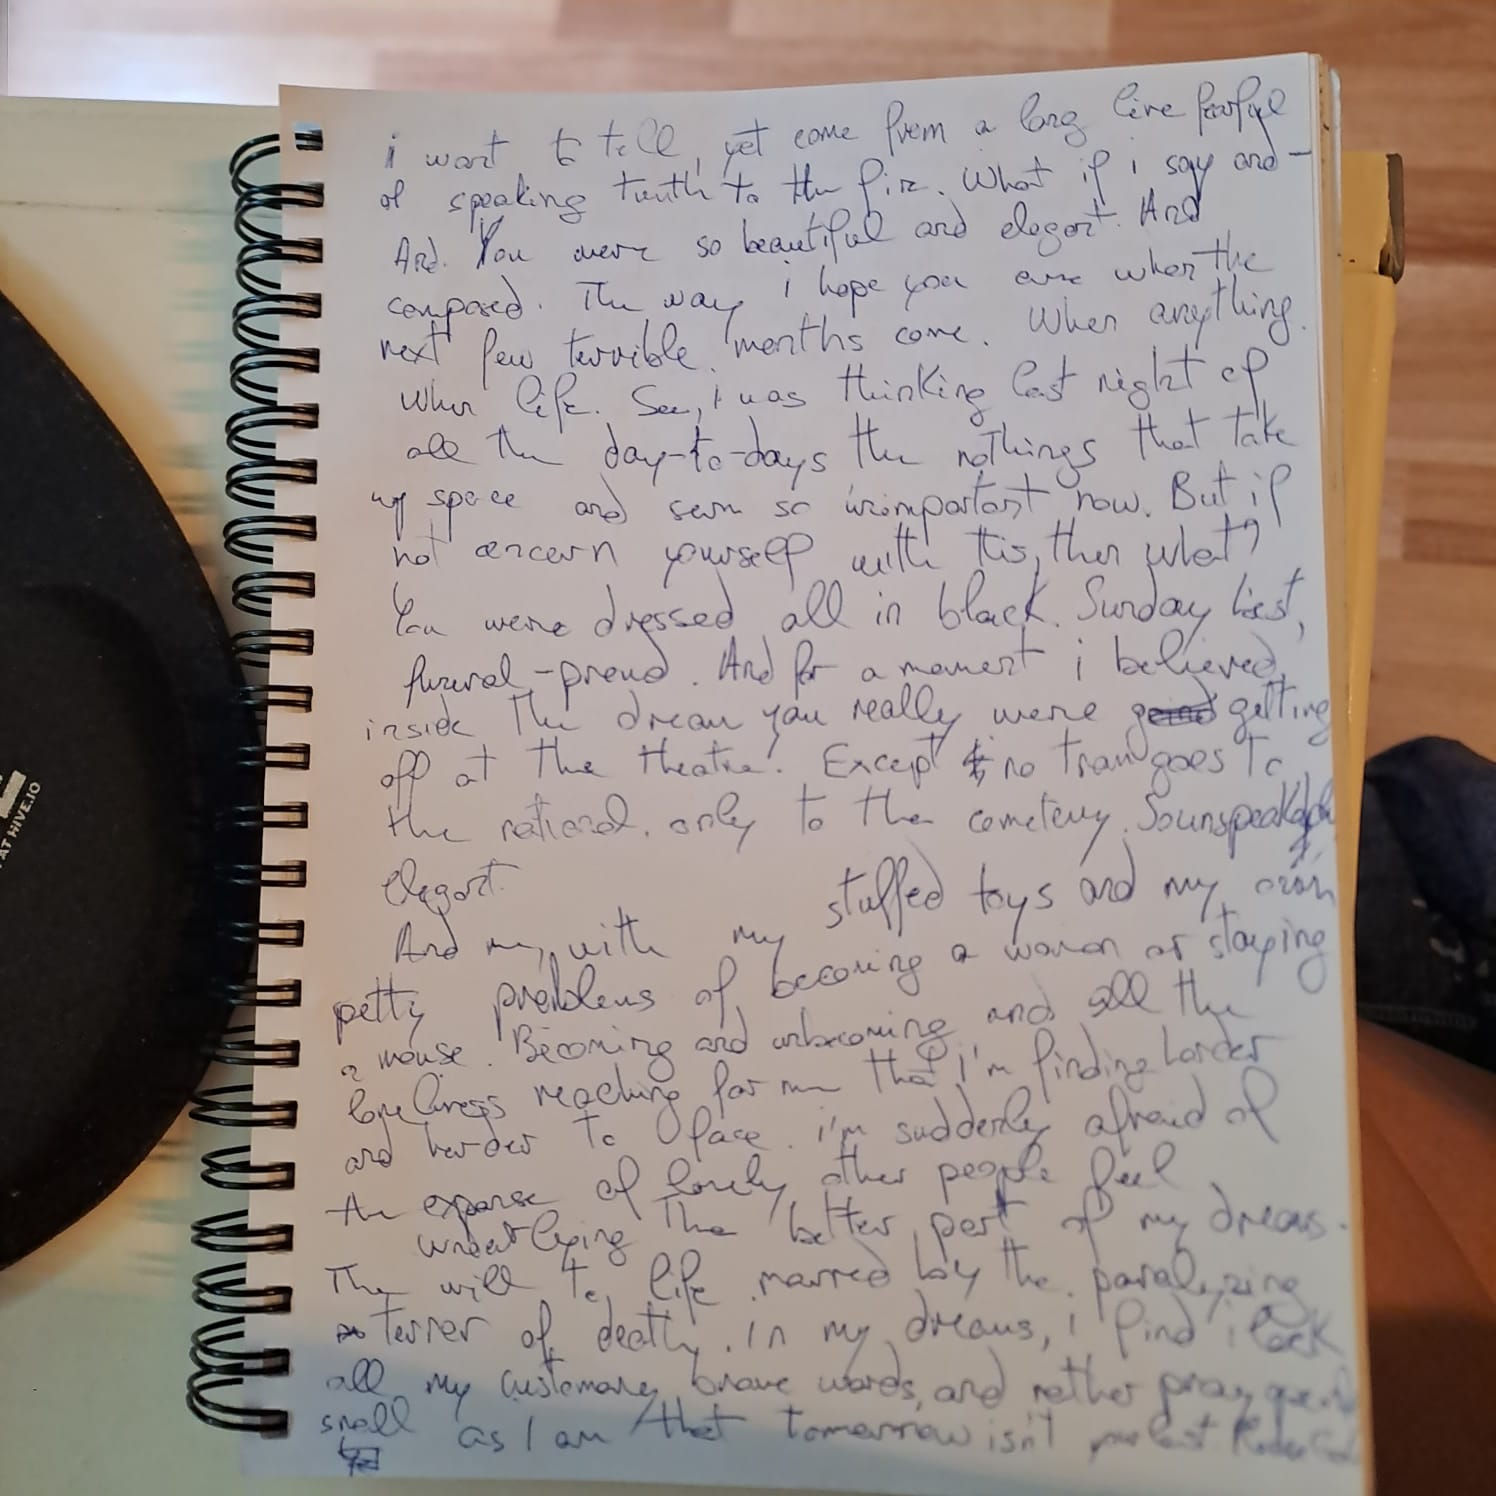 i want to tell, yet come from a long line fearful
of speaking truth to the fire. What if i say and –
And. You were so beautiful and elegant. And
composed. The way i hope you are when the
next few terrible months come. When anything.
When life. See, i was thinking last night of
all the day-to-days the nothings that take
up space and seem so unimportant now. But if
not concern yourself with this, then what?
You were dressed all in black. Sunday best,
funeral-proud. And for a moment i believed,
inside the dream you really were getting
off at the theatre. Except no tram goes to
the national, only to the cemetery. So unspeakably
elegant.
And me, with my stuffed toys and my own
petty problems of becoming a woman or staying
a mouse. Becoming and unbecoming and all the
loneliness reaching for me that I'm finding harder
and harder to face. i'm suddenly afraid of
the expanse of lonely other people feel
underlying the better part of my dreams.
The will to life marred by the paralyzing
terror of death. In my dreams, i find i lack
all my customary brave words, and rather pray
small as I am that tomorrow isn't your last.
AT HIVE.IO